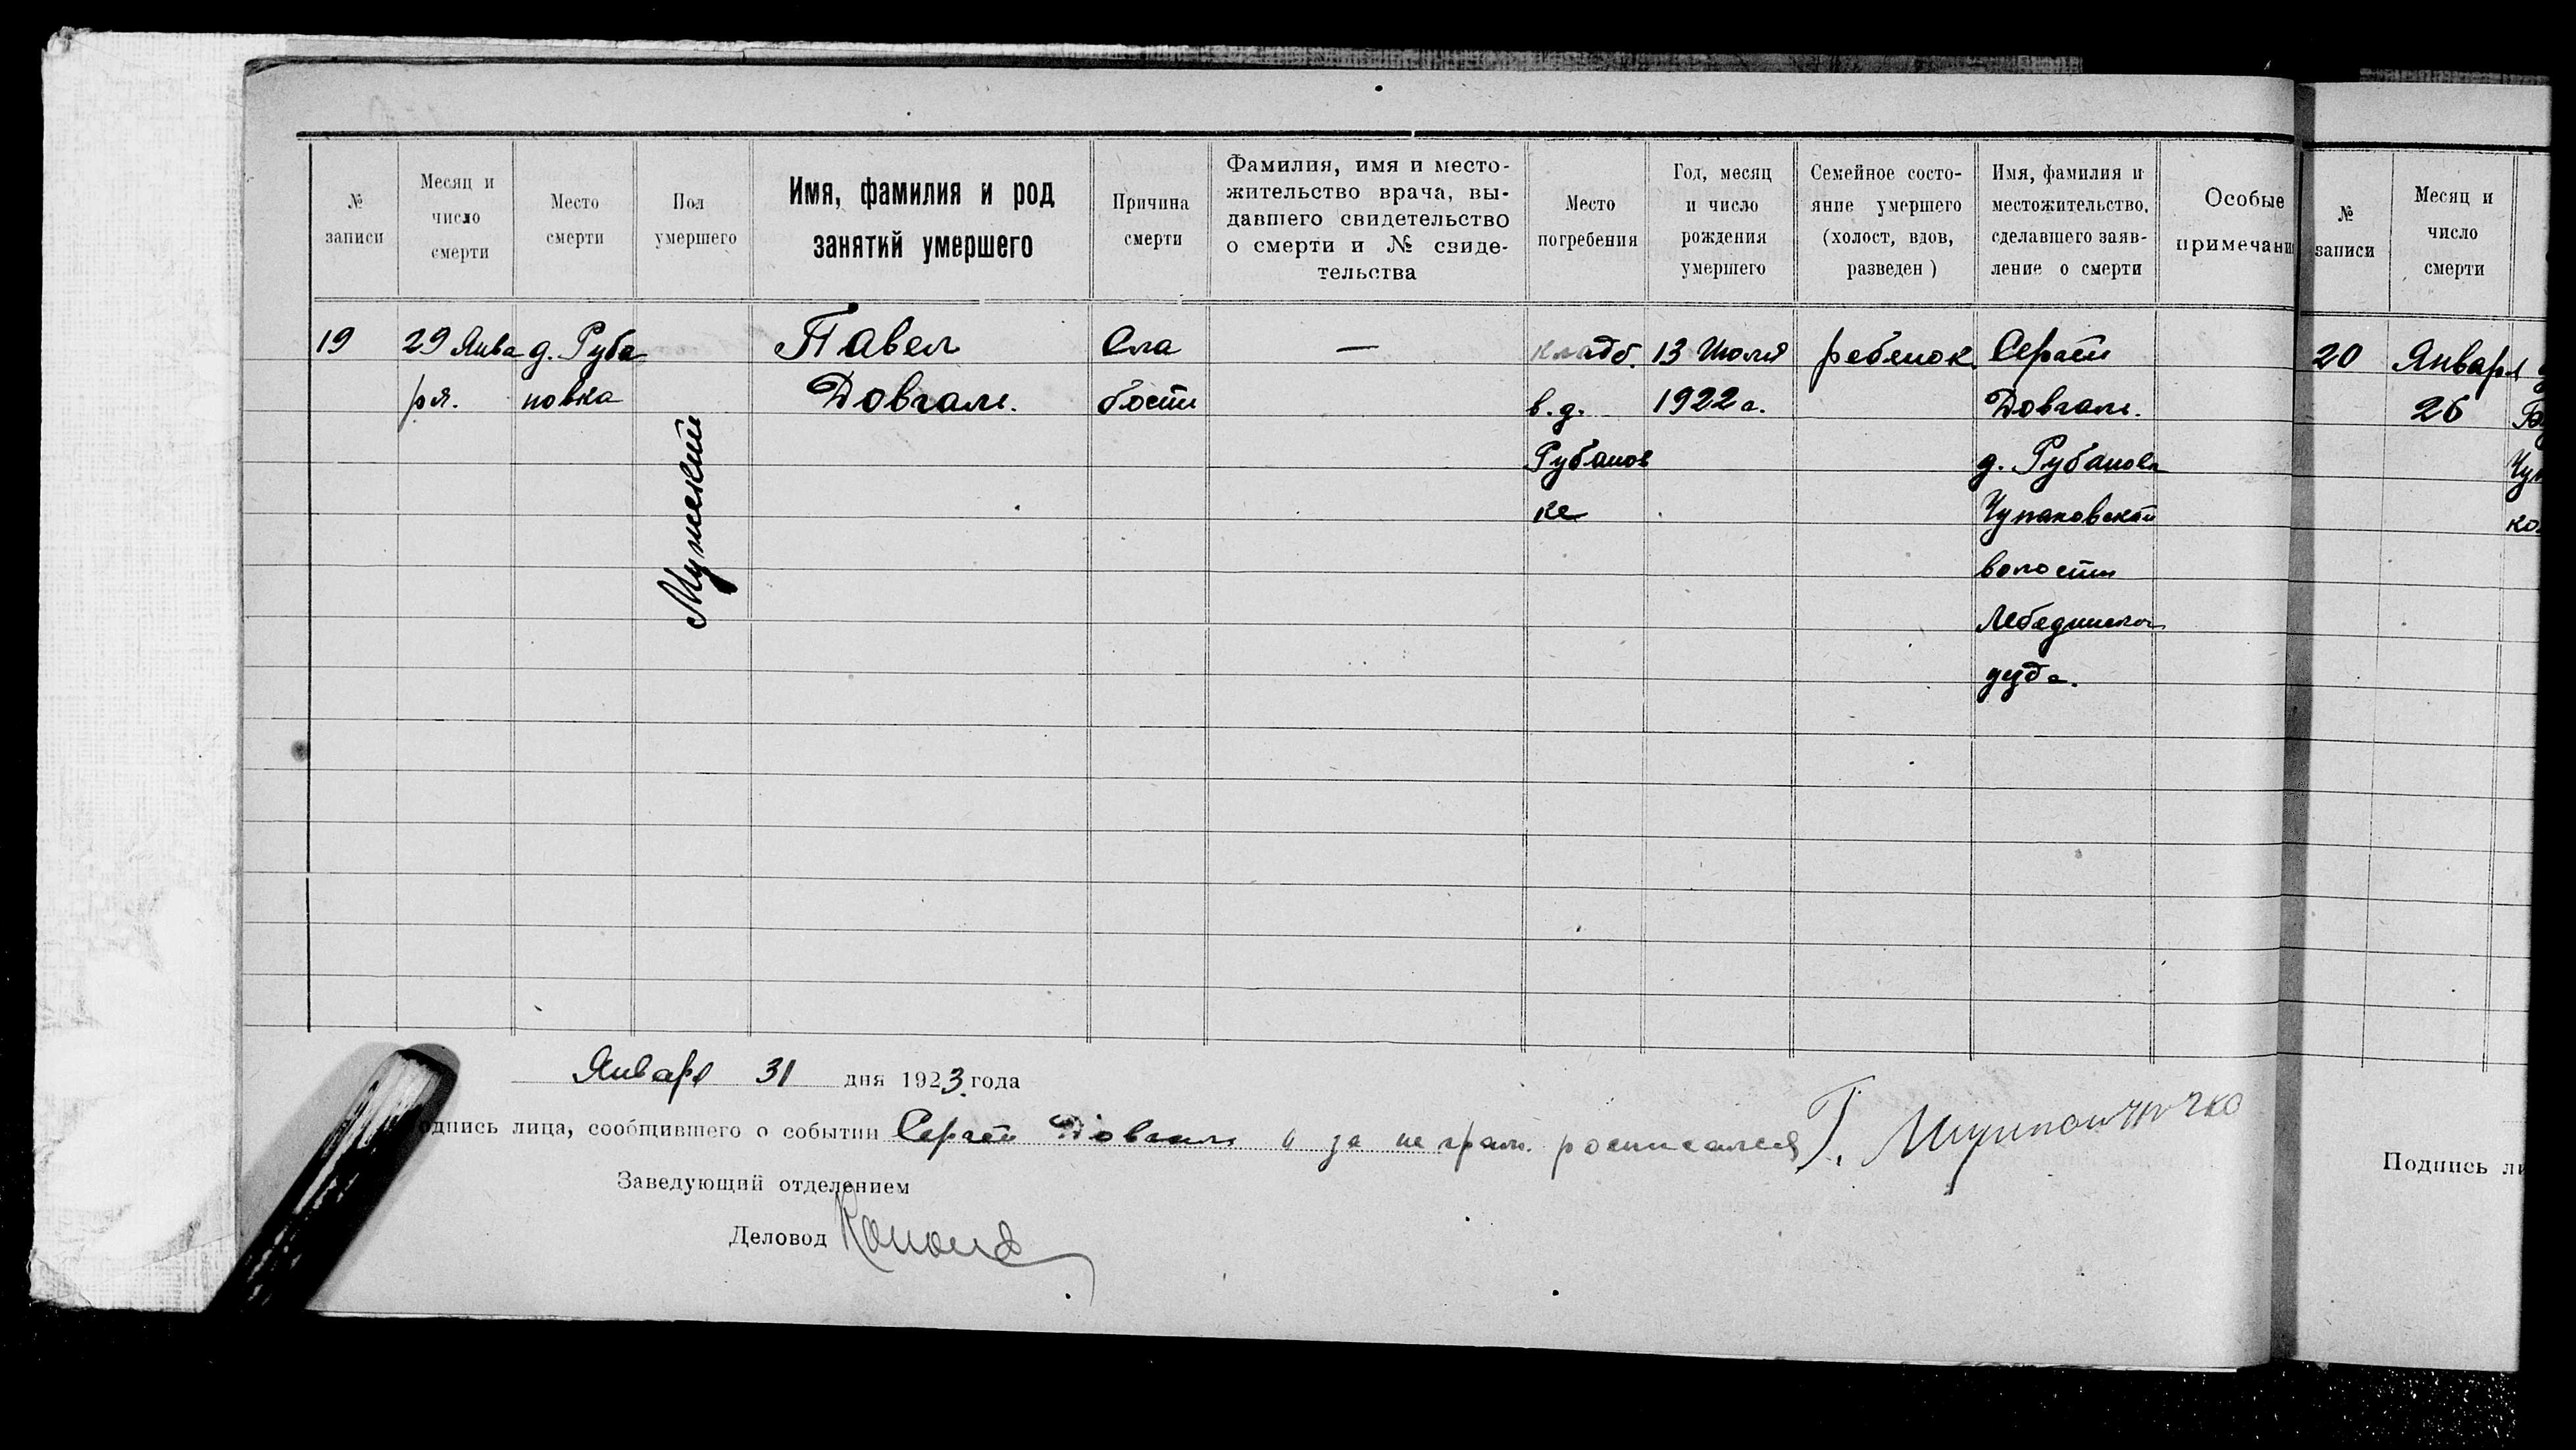 №
записи
Месяц и
число
смерти
Место
смерти
Пол
умершего
Имя, фамилия и род
занятий умершего
Причина
смерти
Фамилия, имя и место-
жительство врача, вы-
давшего свидетельство
о смерти и № свиде-
тельства
Место
погребения
Год, месяц
и число
рождения
умершего
Семейное состо-
яние умершего
(холост, вдов,
разведен)
Имя, фамилия и
местожительство,
сделавшего заяв-
ление о смерти
Особые
примечани
19
29 Янва
ря.
д. Руба
новка
Мужской
Павел
Довгаль.
Сла
бости
—
кладб.
в. д.
Рубанов
ке
13 Июля
1922 г.
ребенок
Сергей
Довгаль.
д. Рубановк
Чупаховской
волости
Лебединского
уезда.
Января 31 дня 1923 года
одпись лица, сообщившего о событии Сергей Довгаль а за не грам. росписался Г.
Заведующий отделением
Деловод
№
записи
Месяц и
число
смерти
20
Января
26
Чуп
ко
Подпись ли